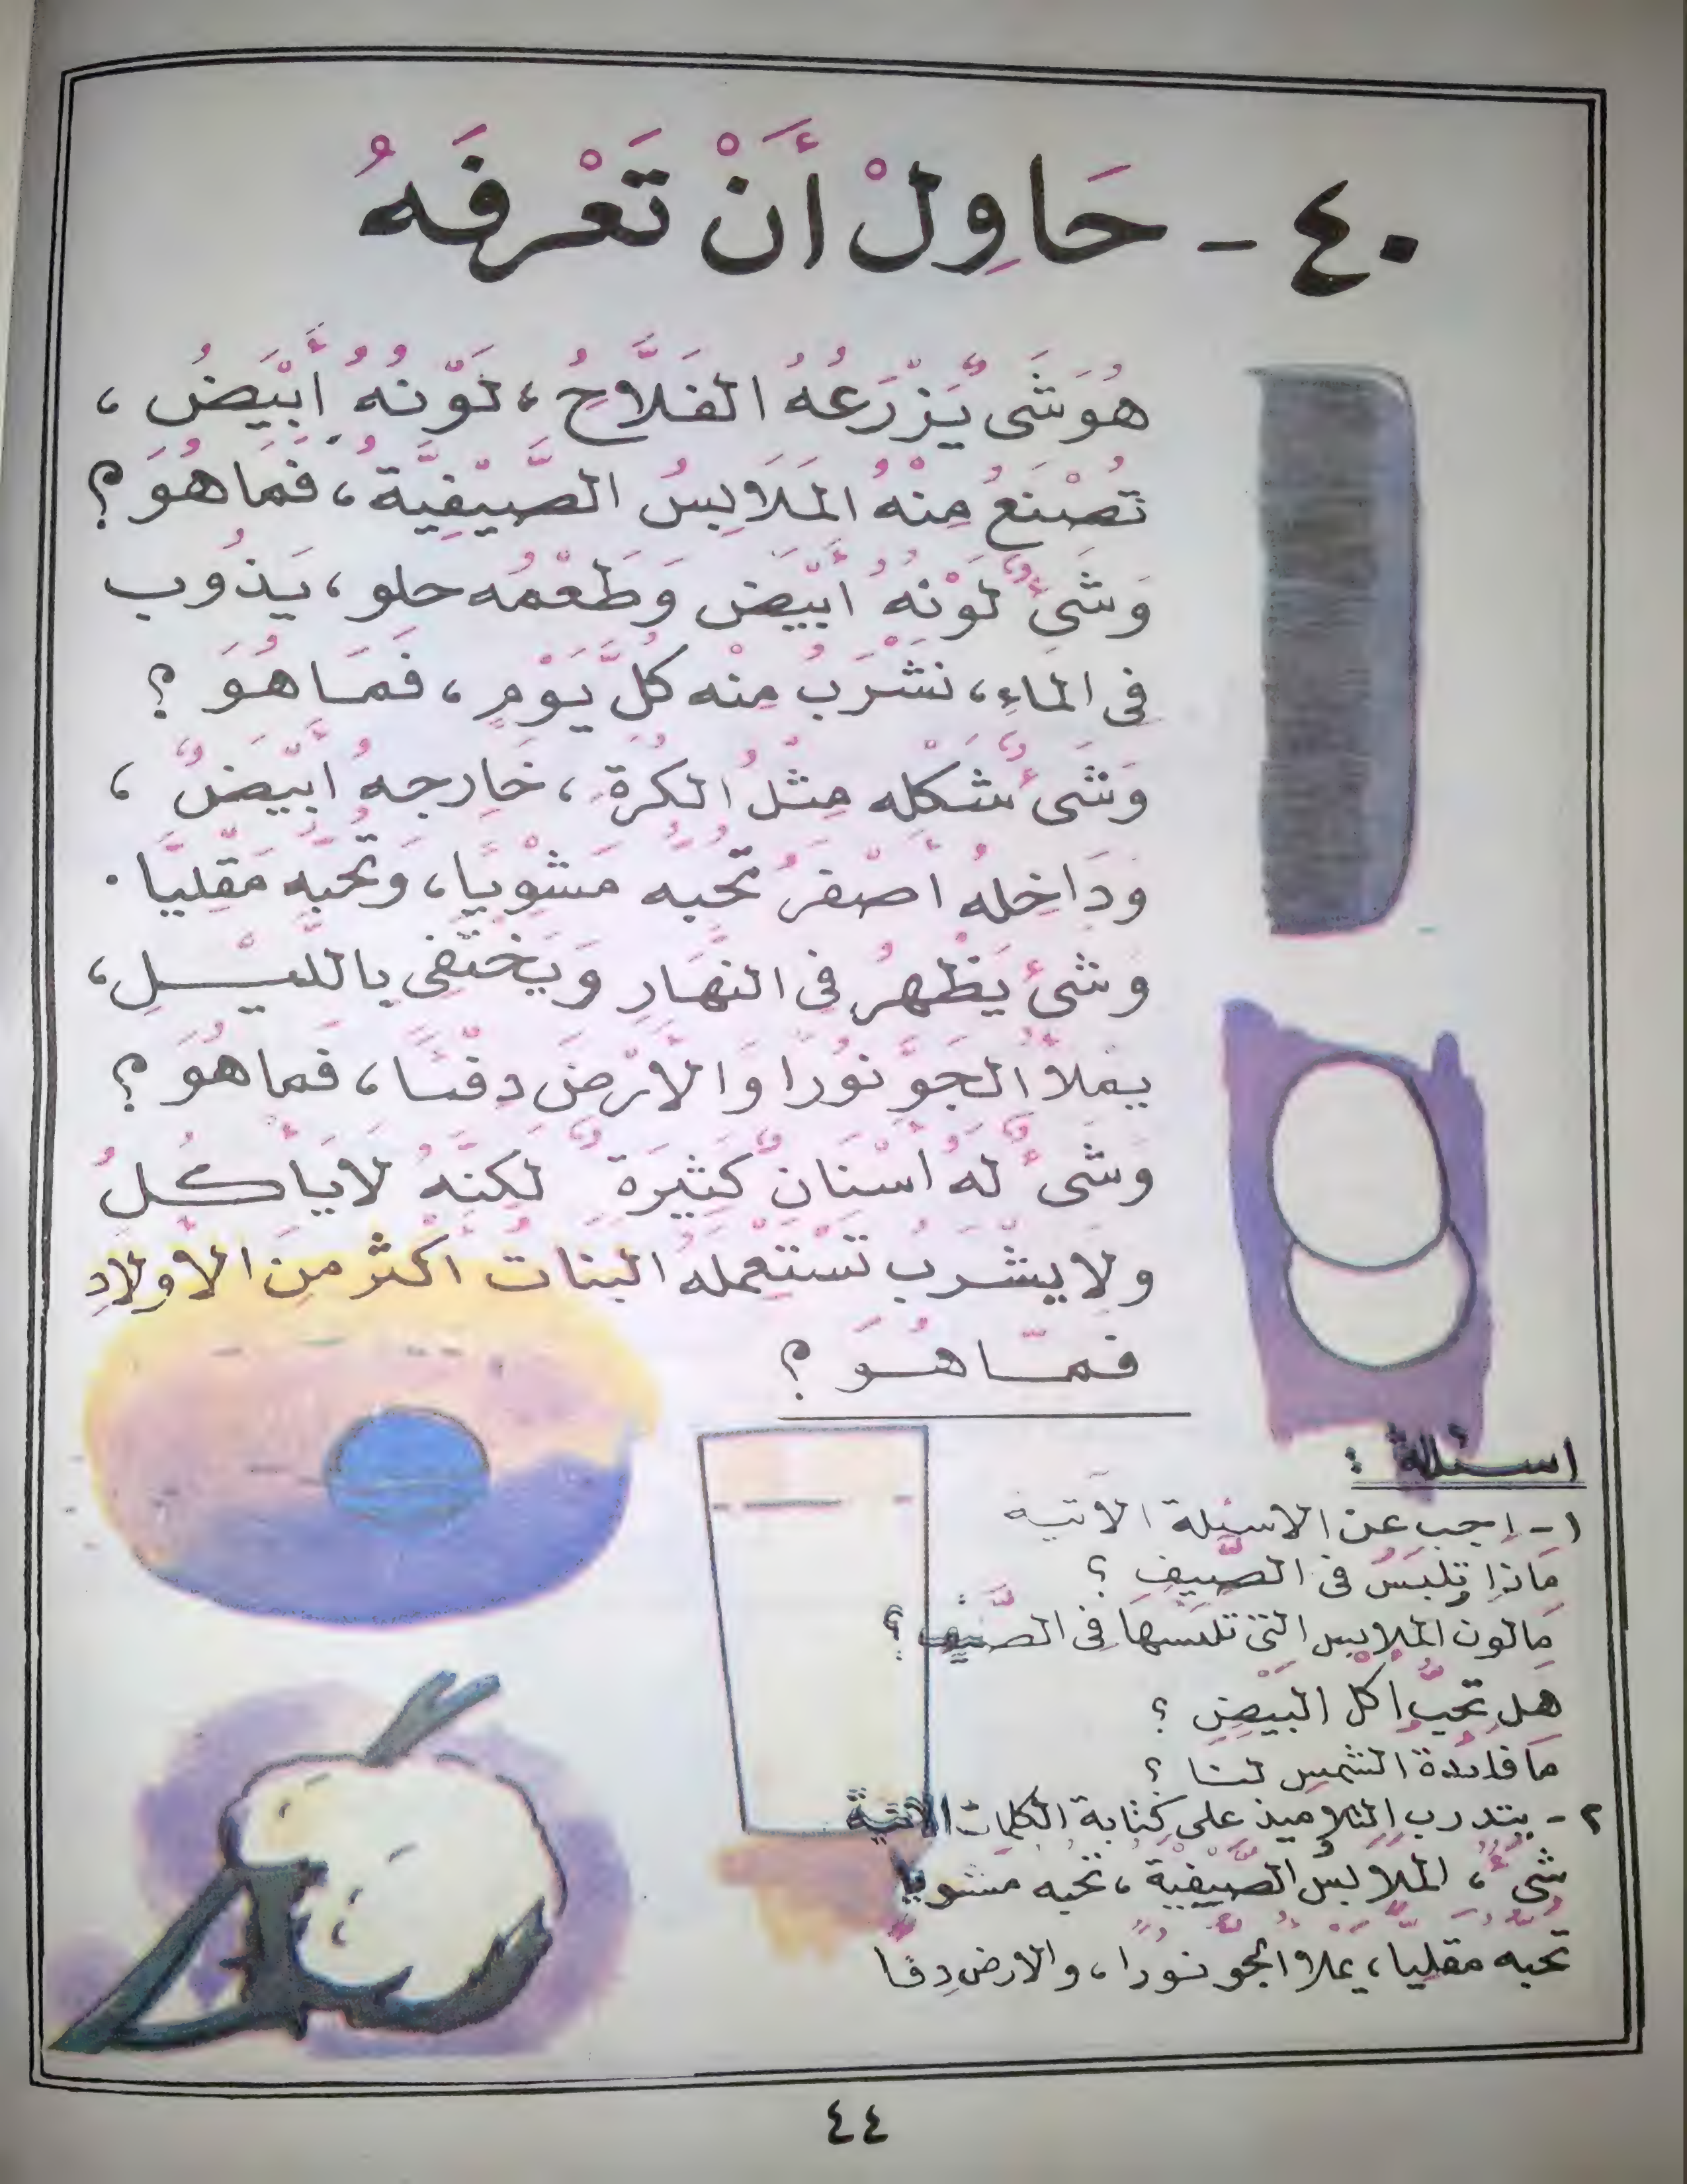 ٤٠ - حَاوِلْ أَنْ تَعْرِفَهُ
هُوَ شَىءٌ يَزْرَعُهُ الفَلَّاحُ، لَوْنُهُ أَبْيَضُ،
تُصْنَعُ مِنْهُ المَلَابِسُ الصَّيْفِيَّةُ، فَمَا هُوَ؟
وَشَىءٌ لَوْنُهُ أَبْيَض وَطَعْمُه حلو، يَذُوب
فى الماءِ، نَشْرَبُ مِنْه كُلَّ يَوْمٍ، فَمَا هُوَ؟
وَشَىءٌ شَكْله مِثْلُ الكُرَةِ، خَارِجهُ ابْيَضٌ،
وَدَاخِلهُ أصْفَرُ تُحُبُّه مَشْوِيًا، وَتُحُبُّه مَقْلِيًّا.
وَشىءٌ يَظْهرُ فى النَّهَارِ وَيَخْتَفِى بِاللَّيْلِ،
يمْلَأُ الجَوَّ نُورًا وَالأَرْضَ دِفْئًا، فَما هُوَ؟
وَشَىءٌ لَهُ أسْنَانٌ كَثِيرَةٌ لَكِنَّهُ لَا يَأكُلُ
ولا يشْرَبُ تَسْتَعْمِلهُ البَنَاتُ أكْثَر مِنَ الأولادِ
فَمَا هُوَ؟
اسئلة :
١- اجب عن الاسئلة الاتية
مَاذا تلبَسُ فى الصَّيفِ؟
مَا لون الملابس التى تلبسها فى الصَّيْف؟
هَل تحُبُّ اكل البَيْضِ؟
مَا فائدة الشمس لنا؟
٢- يتدرب التلاميذ على كتابة الكلمات الاتية
شَىءٌ، المَلَابسُ الصَّيْفِيَّة، تحبه مشويا
تُحبُّه مقليًّا، يملأ الجو نورًا، والارض دِفًا
٤٤